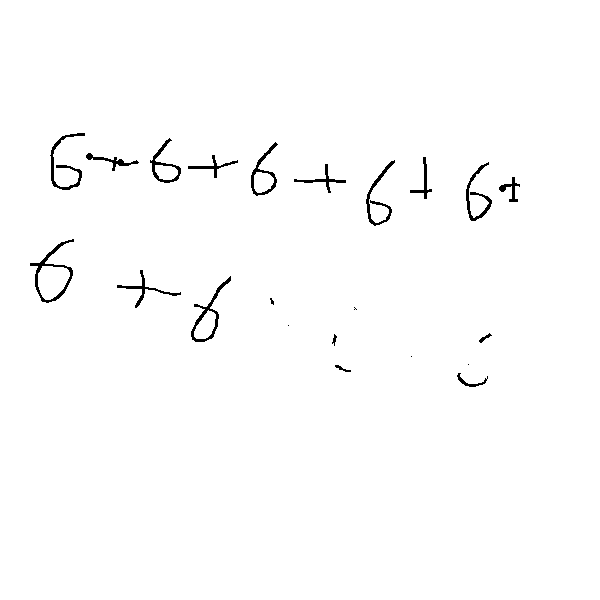 6+6+6+6+6+
6+6